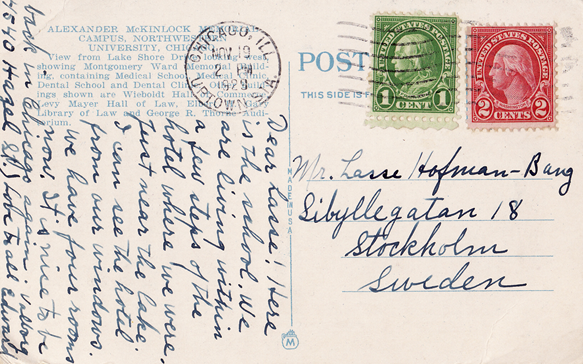 ALEXANDER McKINLOCK
CAMPUS, NORTHWESTERN
UNIVERSITY, CHICAGO
View from Lake Shore Drive looking west,
showing Montgomery Ward Memorial Build-
ing, containing Medical School, Medical Clinic,
Dental School and Dental Clinic. Other build-
ings shown are Wieboldt Hall of Commerce,
Levy Mayer Hall of Law, Elbert
Library of Law and George R. Thorne Audi-
torium.
CHICAGO, ILL.
NOV 19
2 PM
1929
UPTOWN STA.
POST
THIS SIDE IS F
UNITED STATES POSTAGE
1 CENT 1
UNITED STATES POSTAGE
2 CENTS 2
MADE IN USA
Dear Lasse! Here
is the school. We
are living within
a few steps of the
hotel where we were.
Just near the lake.
I can see the hotel
from our windows.
We have four rooms
now. It is nice to be
back in Chicago again
4540 Hazel St. Love to all Edward
Mr. Lasse Hofman-Bang
Sibyllegatan 18
Stockholm
Sweden
M